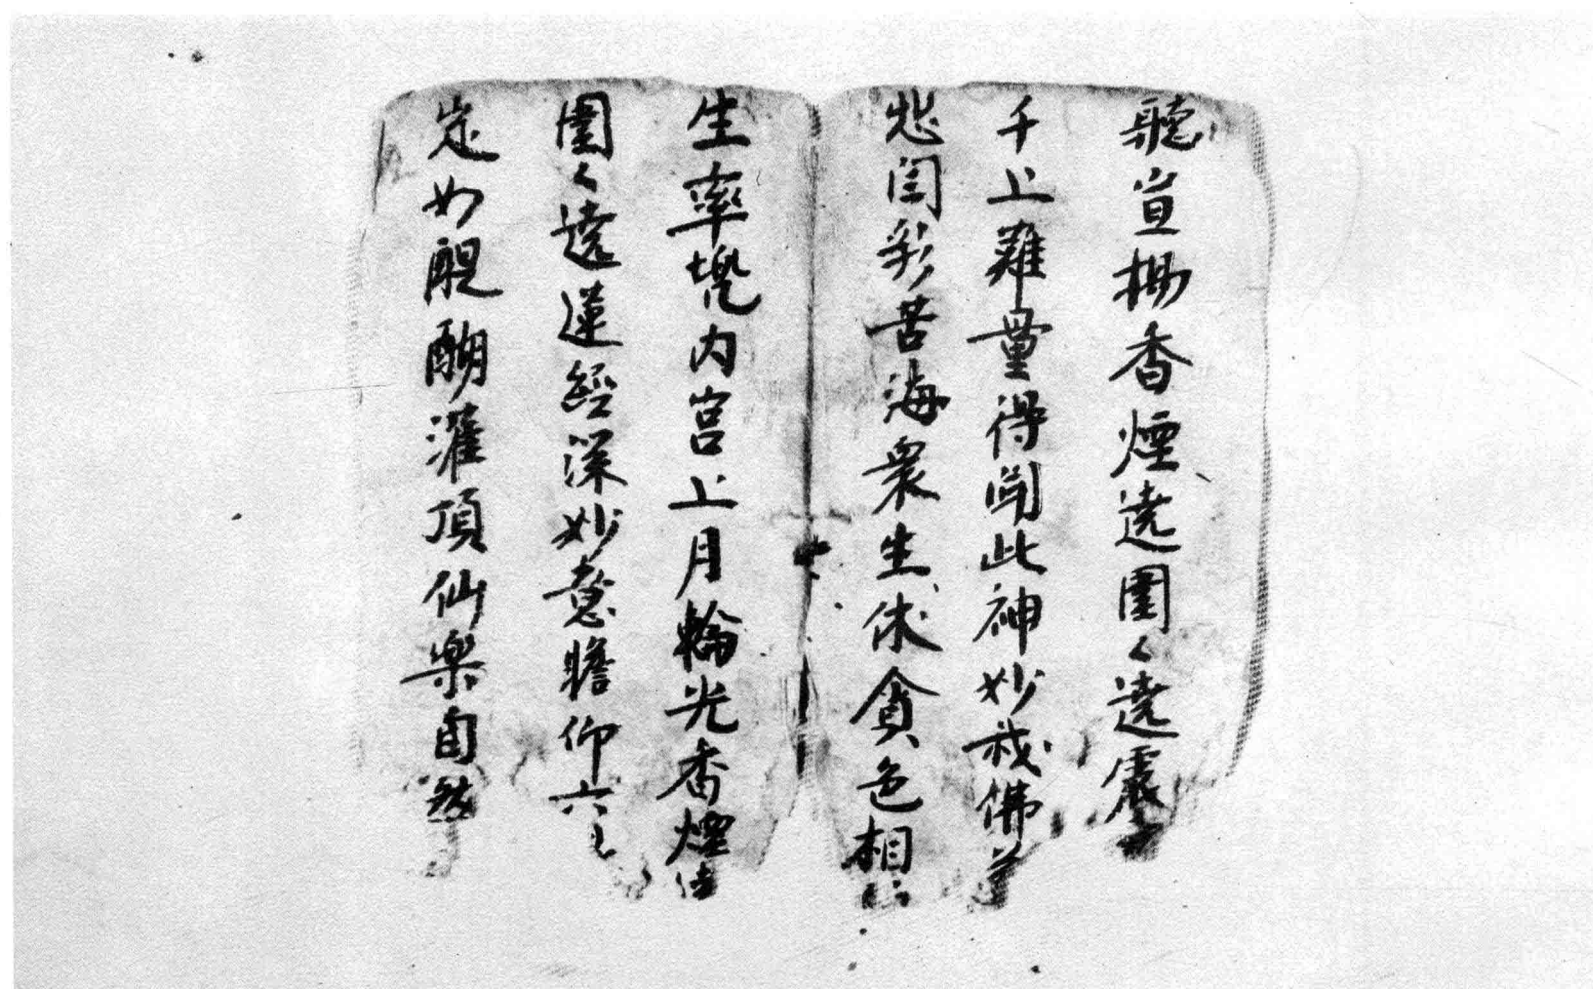 聽宣揚香煙遶圍々遶震
千上難量得聞此神妙哉佛前
悲閏彩苦海衆生休貪色相
生率㙋内宫上月輪光香煙
圍々遶蓮經深妙意瞻仰六
定如醍醐灌頂仙樂自然